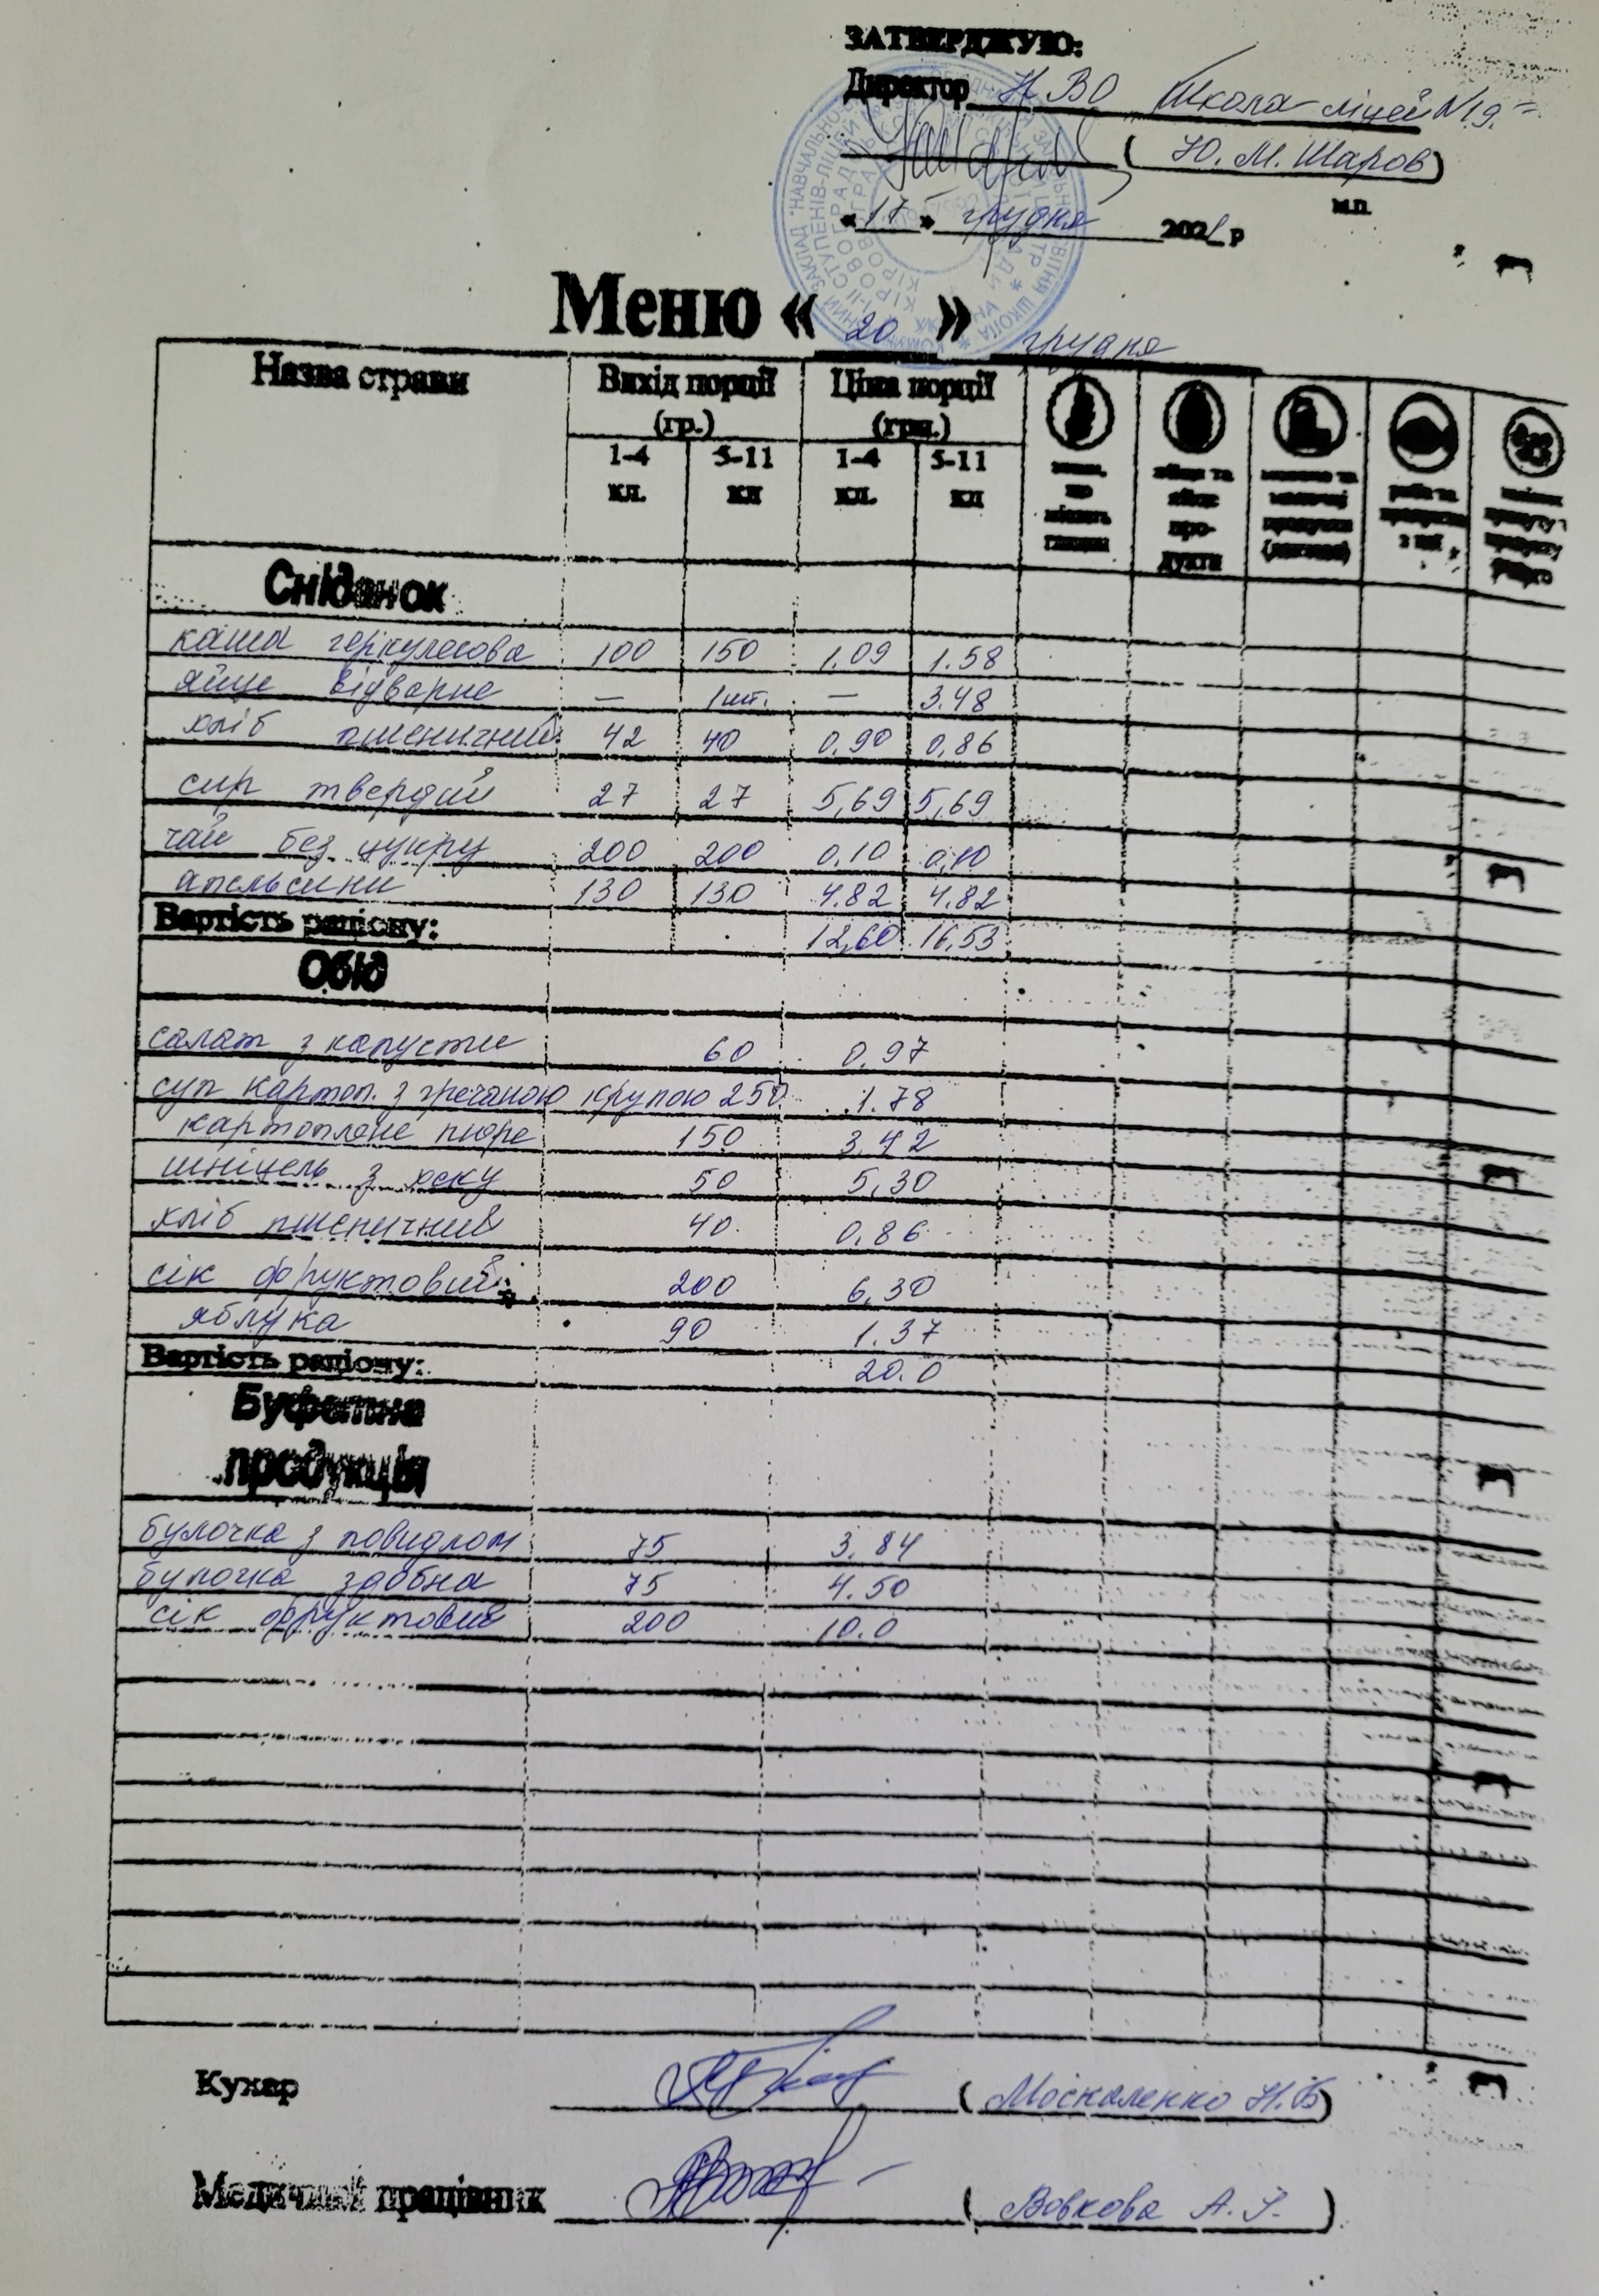 ЗАТВЕРДЖУЮ:
Директор НВО Школа-ліцей №19
(Ю. М. Шаров)
м.п.
«17» грудня 2021 р
Меню «20» грудня
Назва страви Вихід порції (гр.) Ціна порції (грн.)
1-4 кл. 5-11 кл 1-4 кл. 5-11 кл
яйця та про-дукти
Сніданок
каша геркулесова 100 150 1.09 1.58
яйце відварне — 1шт. — 3.48
хліб пшеничний 42 40 0,90 0,86
сир твердий 27 27 5,69 5,69
чай без цукру 200 200 0,10 0,10
апельсини 130 130 4.82 4.82
Вартість раціону: 12,60 16,53
Обід
салат з капусти 60 0,97
суп картоп. з гречаною крупою 250 1.78
картопляне пюре 150 3.42
шніцель з хеку 50 5,30
хліб пшеничний 40 0,86
сік фруктовий 200 6,30
яблука 90 1.37
Вартість раціону: 20.0
Буфетна
продукція
булочка з повидлом 75 3.84
булочка здобна 75 4.50
сік фруктовий 200 10.0
Кухар (Москаленко Н.Б)
Медичний працівник (Вовкова А.І.)